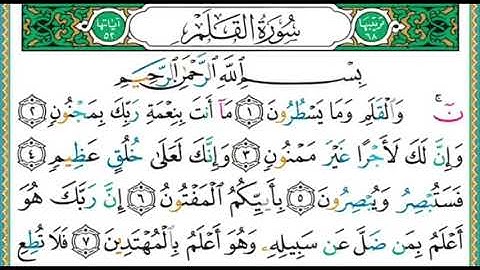 ترتيبها ٦٨ سُورَةُ الْقَلَمِ آياتها ٥٢
بِسْمِ اللَّهِ الرَّحْمَٰنِ الرَّحِيمِ
نٓ ۚ وَالْقَلَمِ وَمَا يَسْطُرُونَ ١ مَا أَنتَ بِنِعْمَةِ رَبِّكَ بِمَجْنُونٍ ٢
وَإِنَّ لَكَ لَأَجْرًا غَيْرَ مَمْنُونٍ ٣ وَإِنَّكَ لَعَلَىٰ خُلُقٍ عَظِيمٍ ٤
فَسَتُبْصِرُ وَيُبْصِرُونَ ٥ بِأَييِّكُمُ الْمَفْتُونُ ٦ إِنَّ رَبَّكَ هُوَ
أَعْلَمُ بِمَن ضَلَّ عَن سَبِيلِهِ وَهُوَ أَعْلَمُ بِالْمُهْتَدِينَ ٧ فَلَا تُطِعِ